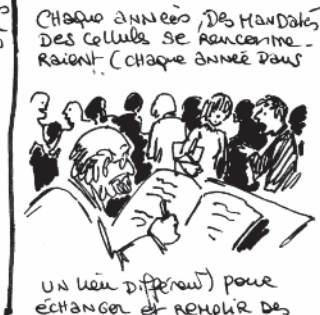 Chaque années, Des Mandatés
Des Cellules se Rencontre-
Raient (chaque année Dans
un lieu Différent) pour
échanger et Remplir Des